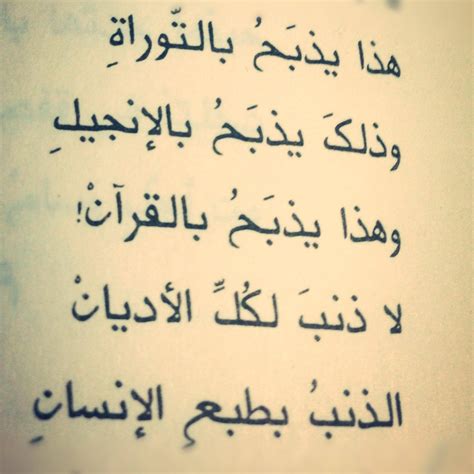 هذا يذبَحُ بالتّوراةِ
وذلكَ يذبَحُ بالإنجيلِ
وهذا يذبَحُ بالقرآنْ!
لا ذنبَ لكُلِّ الأديانْ
الذنبُ بطبعِ الإنسانِ